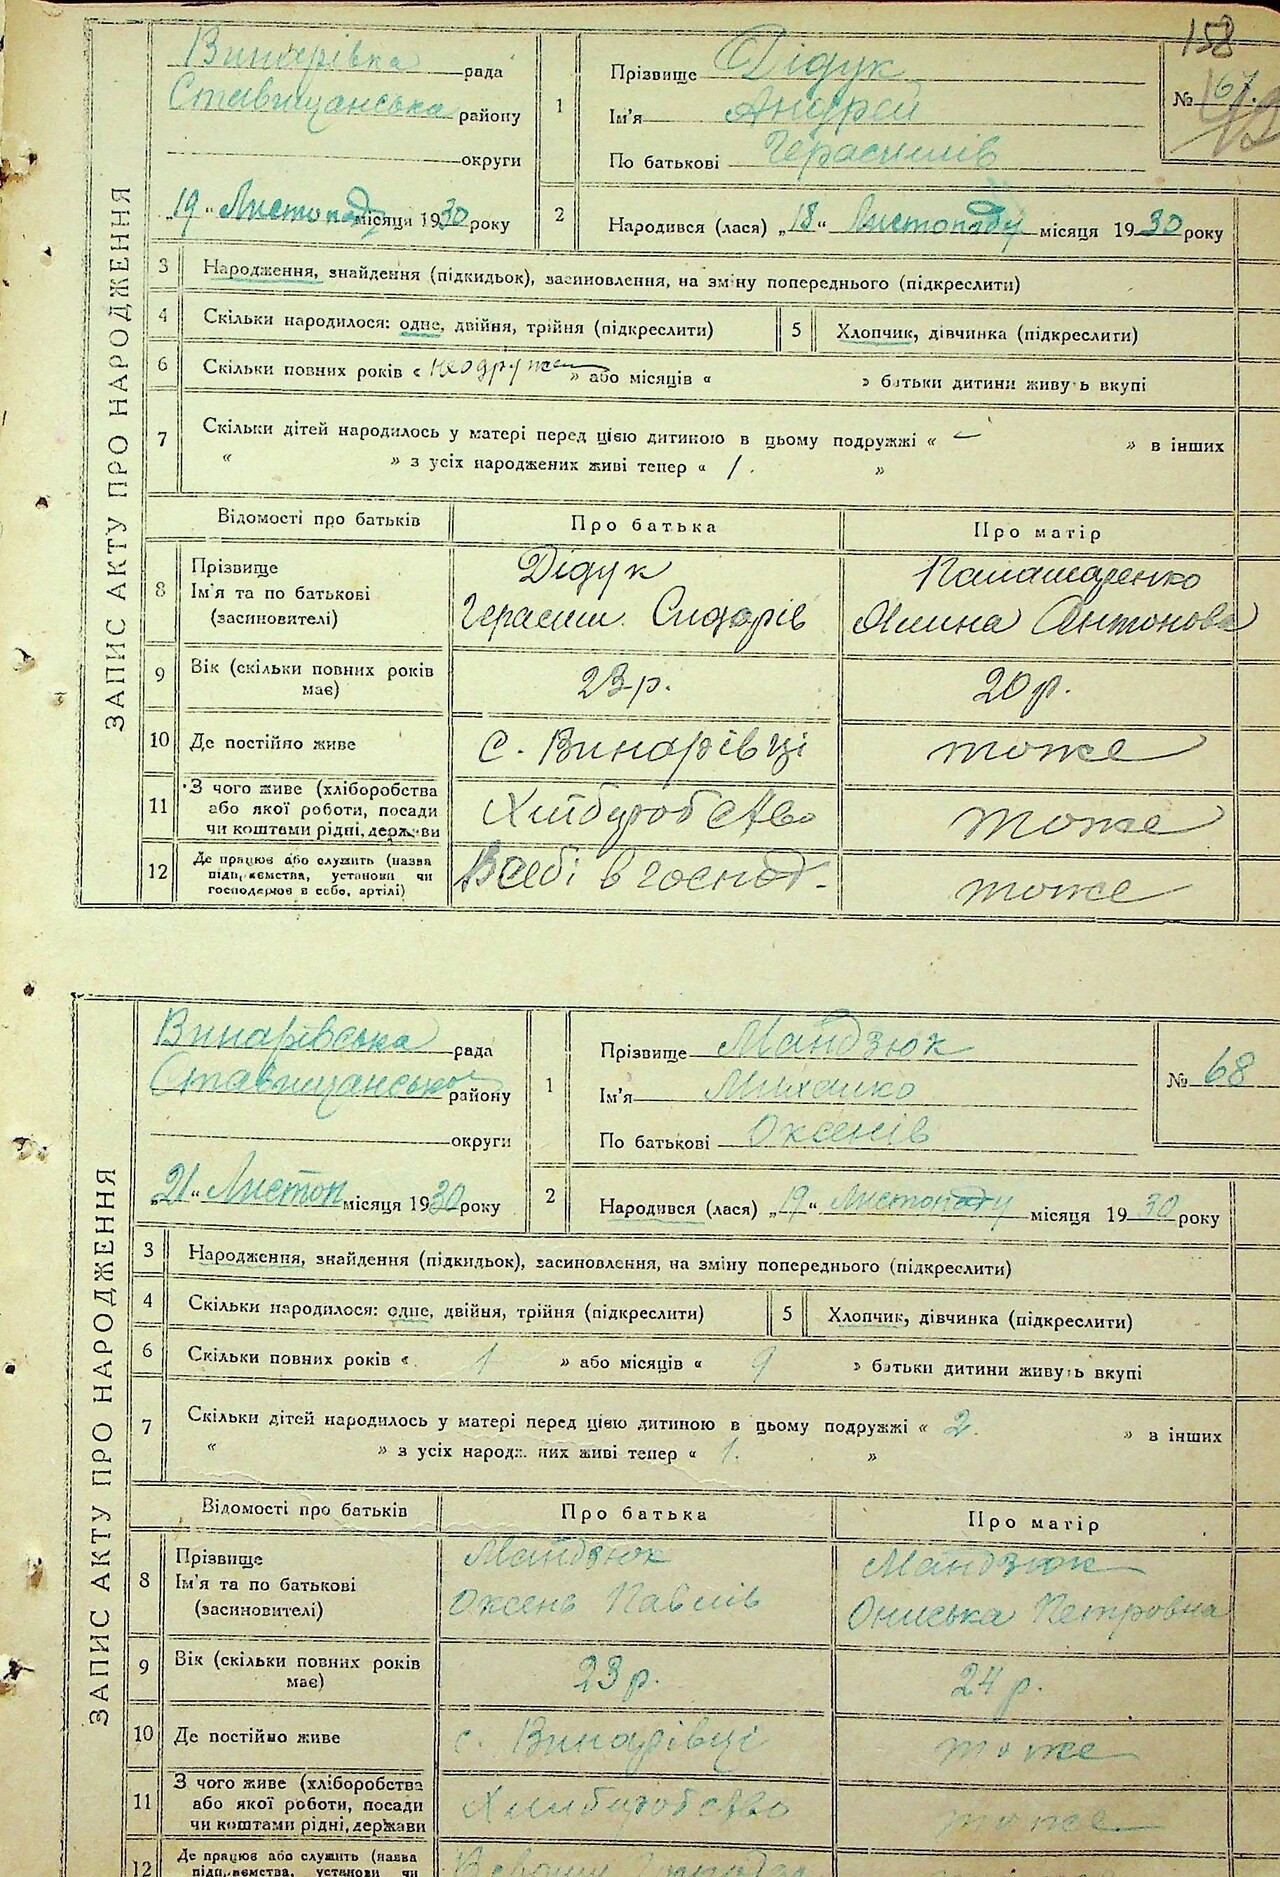 158
ЗАПИС АКТУ ПРО НАРОДЖЕННЯ
Винарівка рада
Ставищанська району
округи
„19“ Листопаду місяця 1930 року
1
Прізвище Дідук
Ім'я Андрей
По батькові Герасимів
№ 67
2
Народився (лася) „18“ Листопаду місяця 1930 року
3 Народження, знайдення (підкидьок), засиновлення, на зміну попереднього (підкреслити)
4 Скільки народилося: одне, двійня, трійня (підкреслити) 5 Хлопчик, дівчинка (підкреслити)
6 Скільки повних років « » або місяців « » батьки дитини живуть вкупі
7 Скільки дітей народилось у матері перед цією дитиною в цьому подружжі « – » в інших
« » з усіх народжених живі тепер « 1. »
Відомості про батьків Про батька Про матір
8 Прізвище
Ім'я та по батькові
(засиновителі)
Дідук
Герасим Сидорів
Антонова
9 Вік (скільки повних років має) 23 р. 20 р.
10 Де постійно живе с. Винарівці тоже
11 З чого живе (хліборобства
або якої роботи, посади
чи коштами рідні, держави
Хліборобство тоже
12 Де працює або служить (назва
підприємства, установи чи
господарює в себе, артілі)
В себі в господ. тоже
ЗАПИС АКТУ ПРО НАРОДЖЕННЯ
Винарівська рада
Ставищанської району
округи
„21“ Листоп місяця 1930 року
1
Прізвище Мандзюк
Ім'я Михалко
По батькові Оксенів
№ 68
2
Народився (лася) „19“ Листопаду місяця 1930 року
3 Народження, знайдення (підкидьок), засиновлення, на зміну попереднього (підкреслити)
4 Скільки народилося: одне, двійня, трійня (підкреслити) 5 Хлопчик, дівчинка (підкреслити)
6 Скільки повних років « 1 » або місяців « 9 » батьки дитини живуть вкупі
7 Скільки дітей народилось у матері перед цією дитиною в цьому подружжі « 2. » в інших
« » з усіх народжених живі тепер « 1. »
Відомості про батьків Про батька Про матір
8 Прізвище
Ім'я та по батькові
(засиновителі)
Мандзюк Мандзюк
Оксень Павлів Ониська Петровна
9 Вік (скільки повних років має) 23 р. 24 р.
10 Де постійно живе с. Винарівці тоже
11 З чого живе (хліборобства
або якої роботи, посади
чи коштами рідні, держави
Хліборобство тоже
12 Де працює або служить (назва
підприємства, установи чи